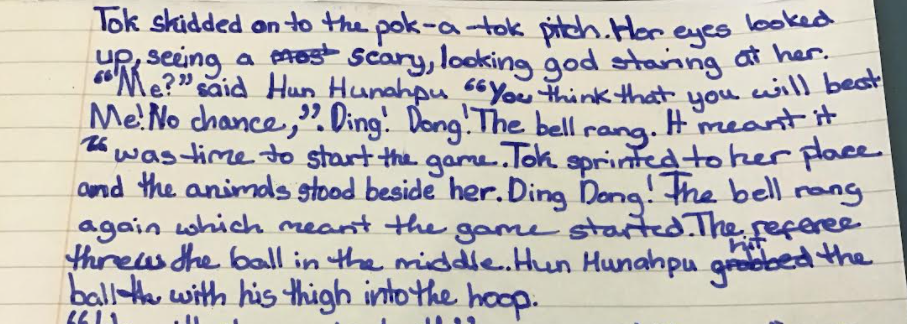 Tok skidded on to the pok-a-tok pitch. Her eyes looked
up, seeing a most scary, looking god staring at her.
"Me?" said Hun Hunahpu "You think that you will beat
Me! No chance,". Ding! Dong! The bell rang. It meant it
was time to start the game. Tok sprinted to her place
and the animals stood beside her. Ding Dong! The bell rang
again which meant the game started. The referee
threw the ball in the middle. Hun Hunahpu grabbed hit the
ball the with his thigh into the hoop.